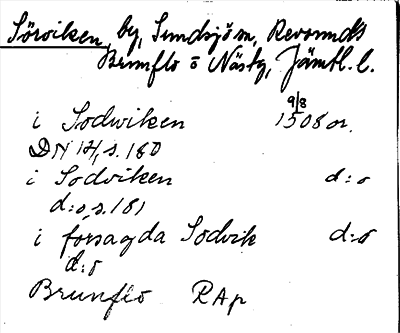 Sörviken, by, Sundsjö sn, Revsunds
Brunflo o Näsky, Jämtl. l.
9/8
i Sodwiken 1508 or.
DN 14, s. 180
i Sodviken d:o
d:o, s. 181
i forsagda Sodvik d:o
d:o
Brunflo RAp